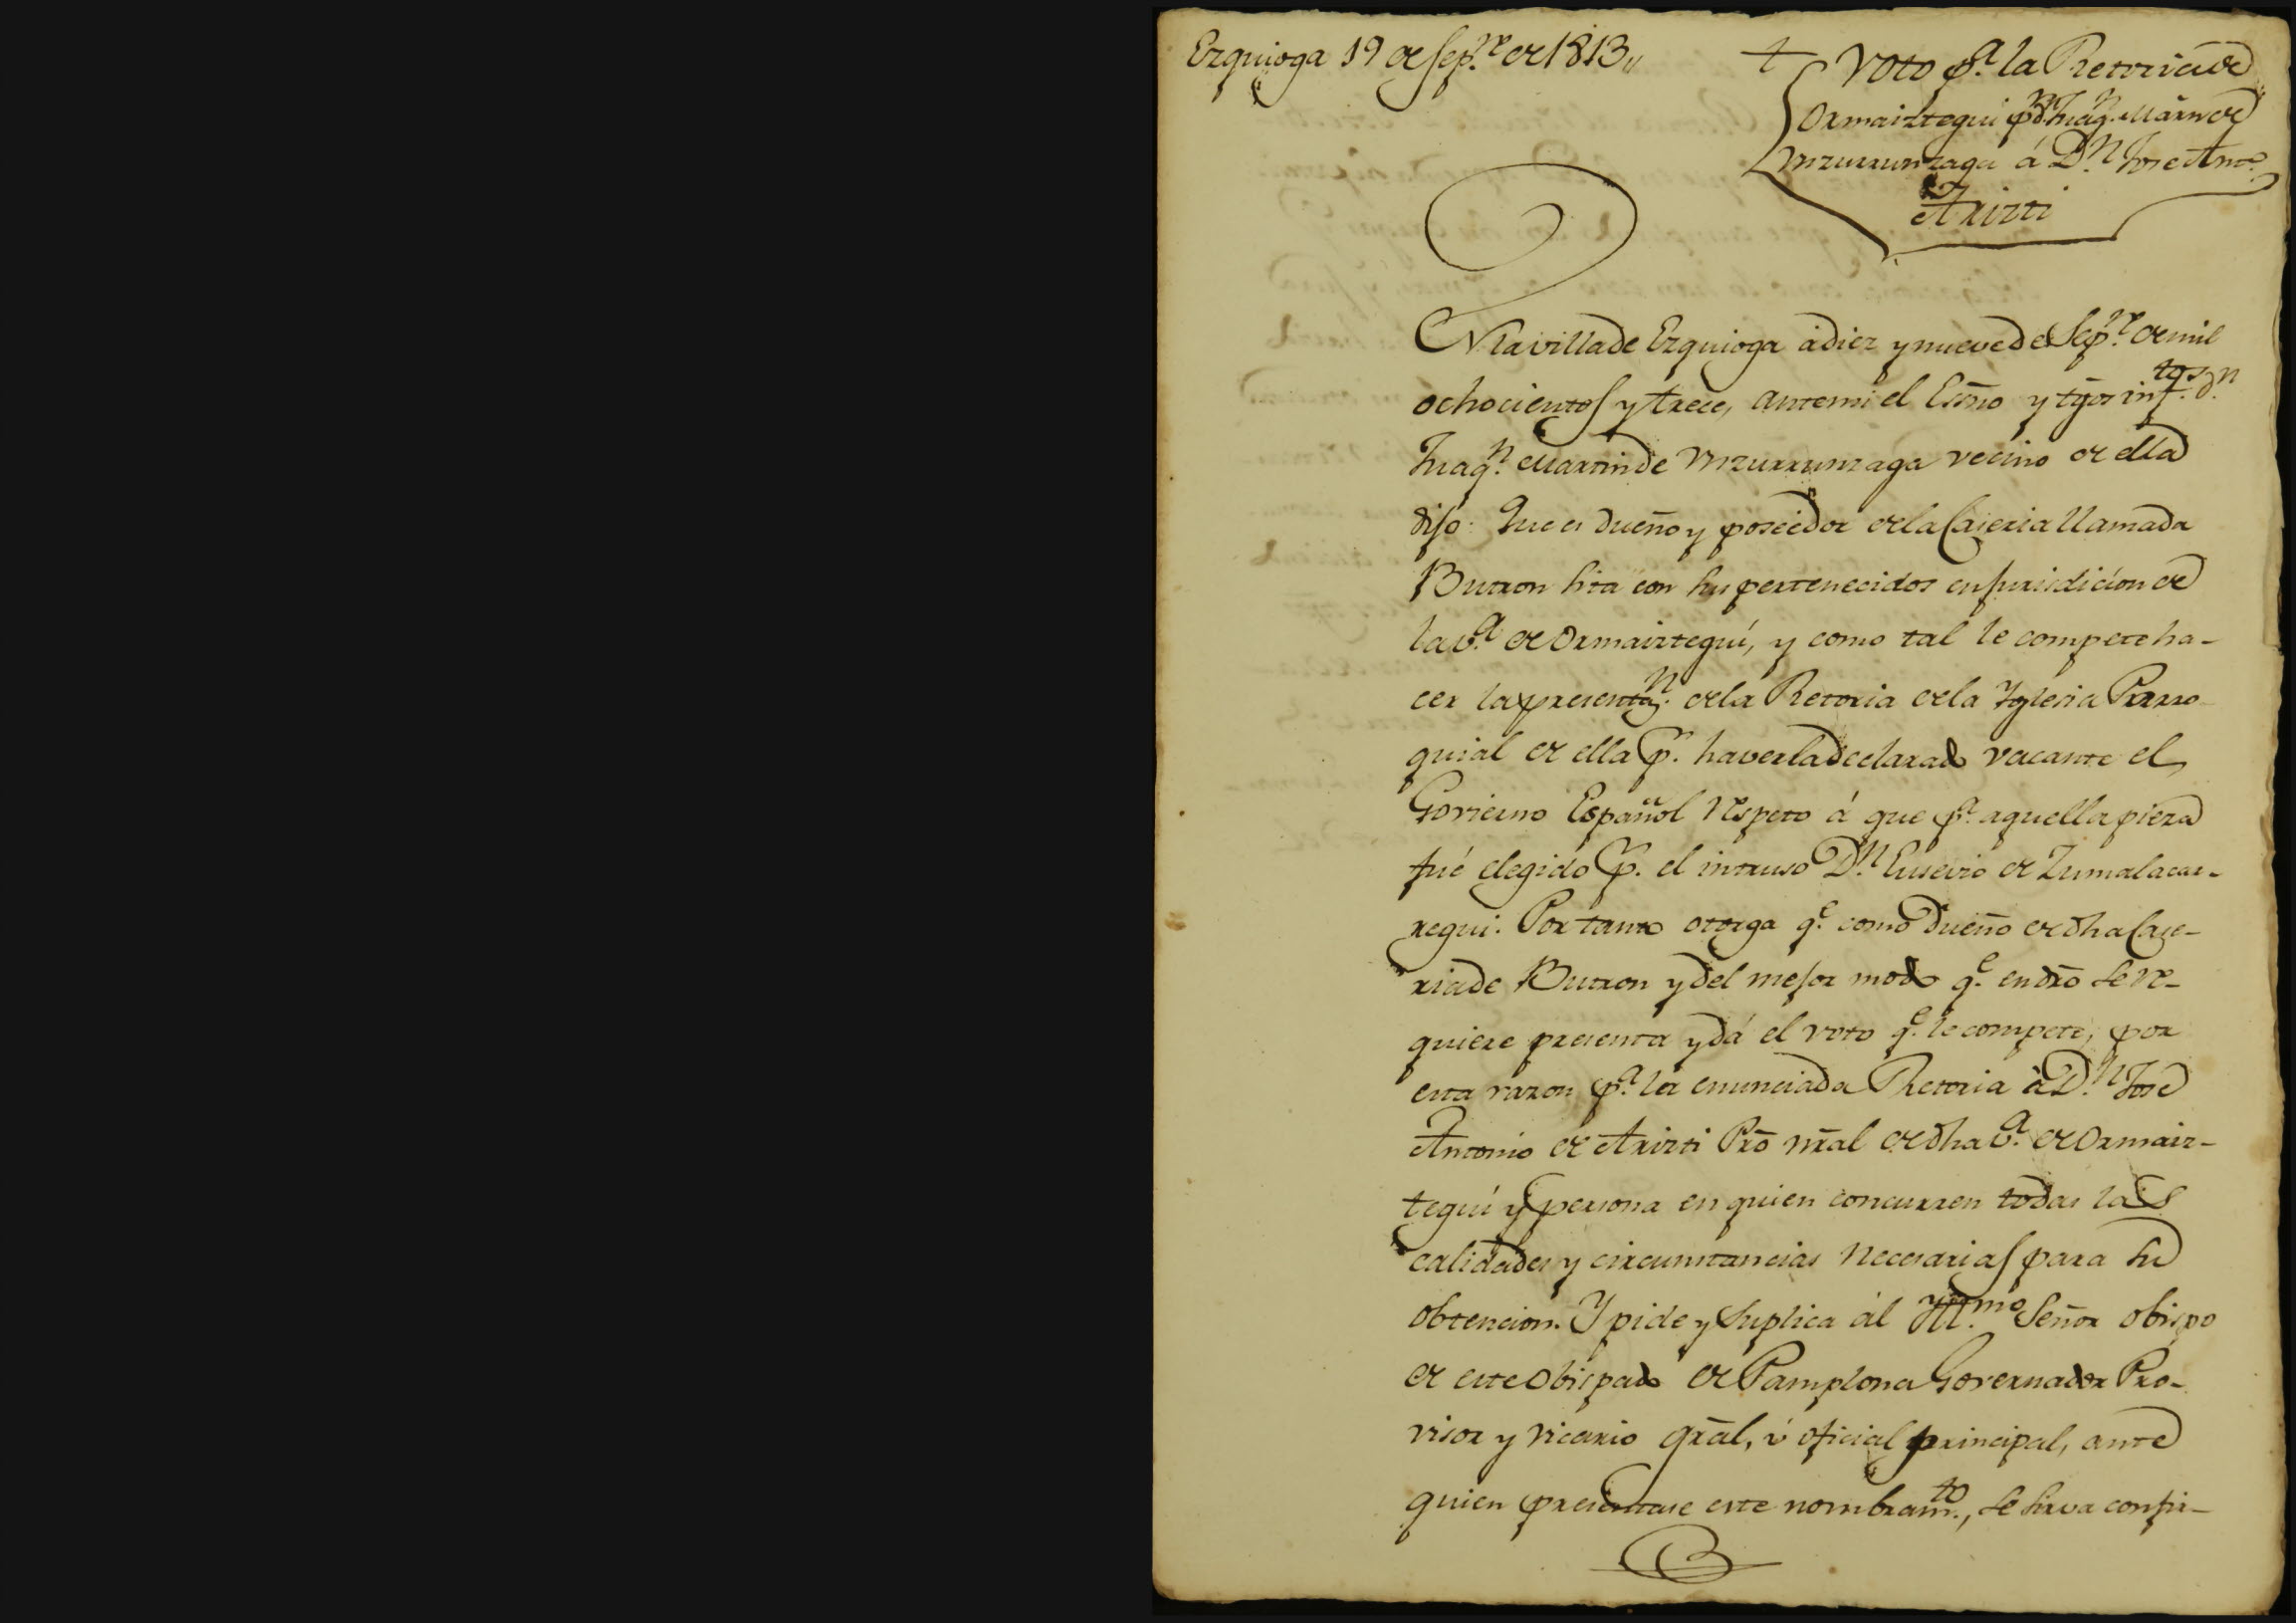 Ezquioga 19 de Sep.re de 1813„
Voto p.a la Retoria de
Ormaiztegui p.r d.n Juaq.n Marn de
Unzurrunzaga á D.n Jose Anto.
Arizti
EN la villa de Ezquioga à diez y nueve de Sep.re de mil
ochocientos y trece, ante mi el Esño y tgos inf.tos d.n
Juaq.n Martin de Unzurrunzaga vecino de ella
dijo: Que es dueño y poseedor de la Caseria llamada
Butron sita con sus pertenecidos en jurisdicion de
la v.a de Ormaiztegui, y como tal le compete ha-
cer la presentaz.n de la Retoria de la Yglesia Parro-
quial de ella p.r haverla declarado vacante el
Govierno Español respeto á que p.a aquella pieza
fué elegido p.r el intruso D.n Eusevio de Zumalacar-
regui. Por tanto otorga q.e como Dueño de dha Case-
ria de Butron y del mejor modo q.e en dro se re-
quiere presenta y dá el voto q.e le compete, por
esta razon p.a la enunciada Retoria à D.n Jose
Antonio de Arizti Pro nral de dha v.a de Ormaiz-
tegui y persona en quien concurren todas las
calidades y circunstancias necesarias para su
obtencion. Y pide y suplica ál Yll.mo Señor obispo
de este Obispado de Pamplona Governador Pro-
visor y Vicario gral, ú oficial principal, ante
quien presentase este nombram.to, se sirva confir-